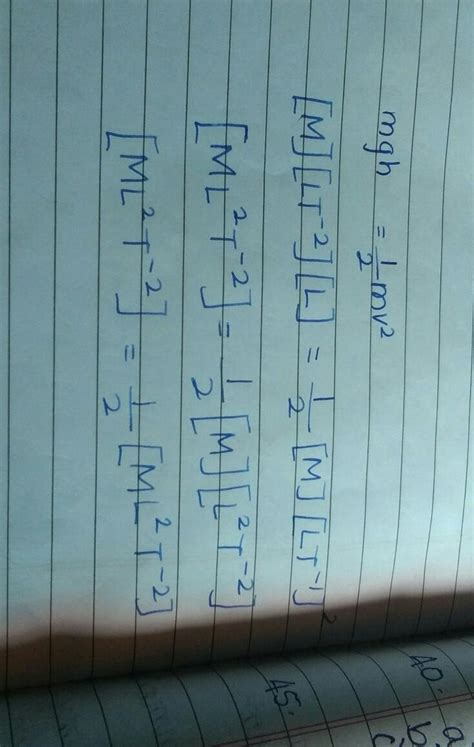 mgh = 1/2 mv²
[M][LT⁻²][L] = 1/2 [M][LT⁻¹]²
[ML²T⁻²] = 1/2 [M][L²T⁻²]
[ML²T⁻²] = 1/2 [ML²T⁻²]
40.
45.
a
b
c